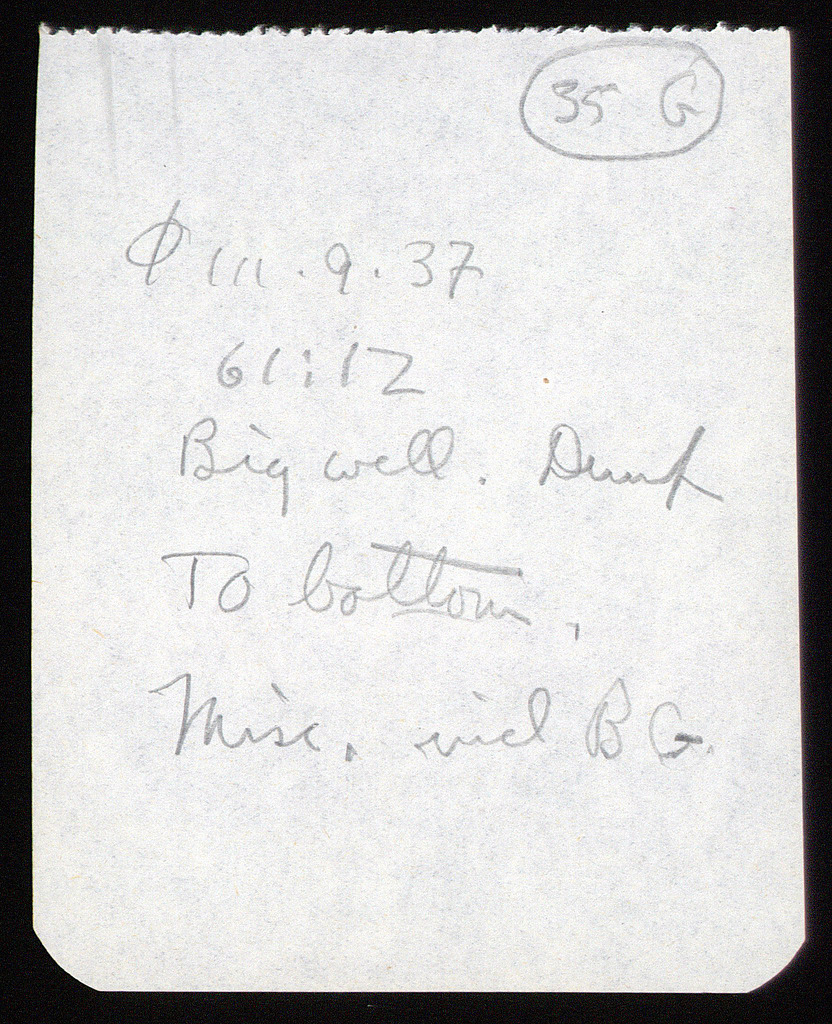 35 G
Φ III.9.37
61:12
Big well. Dump
To bottom.
Misc. incl BG.